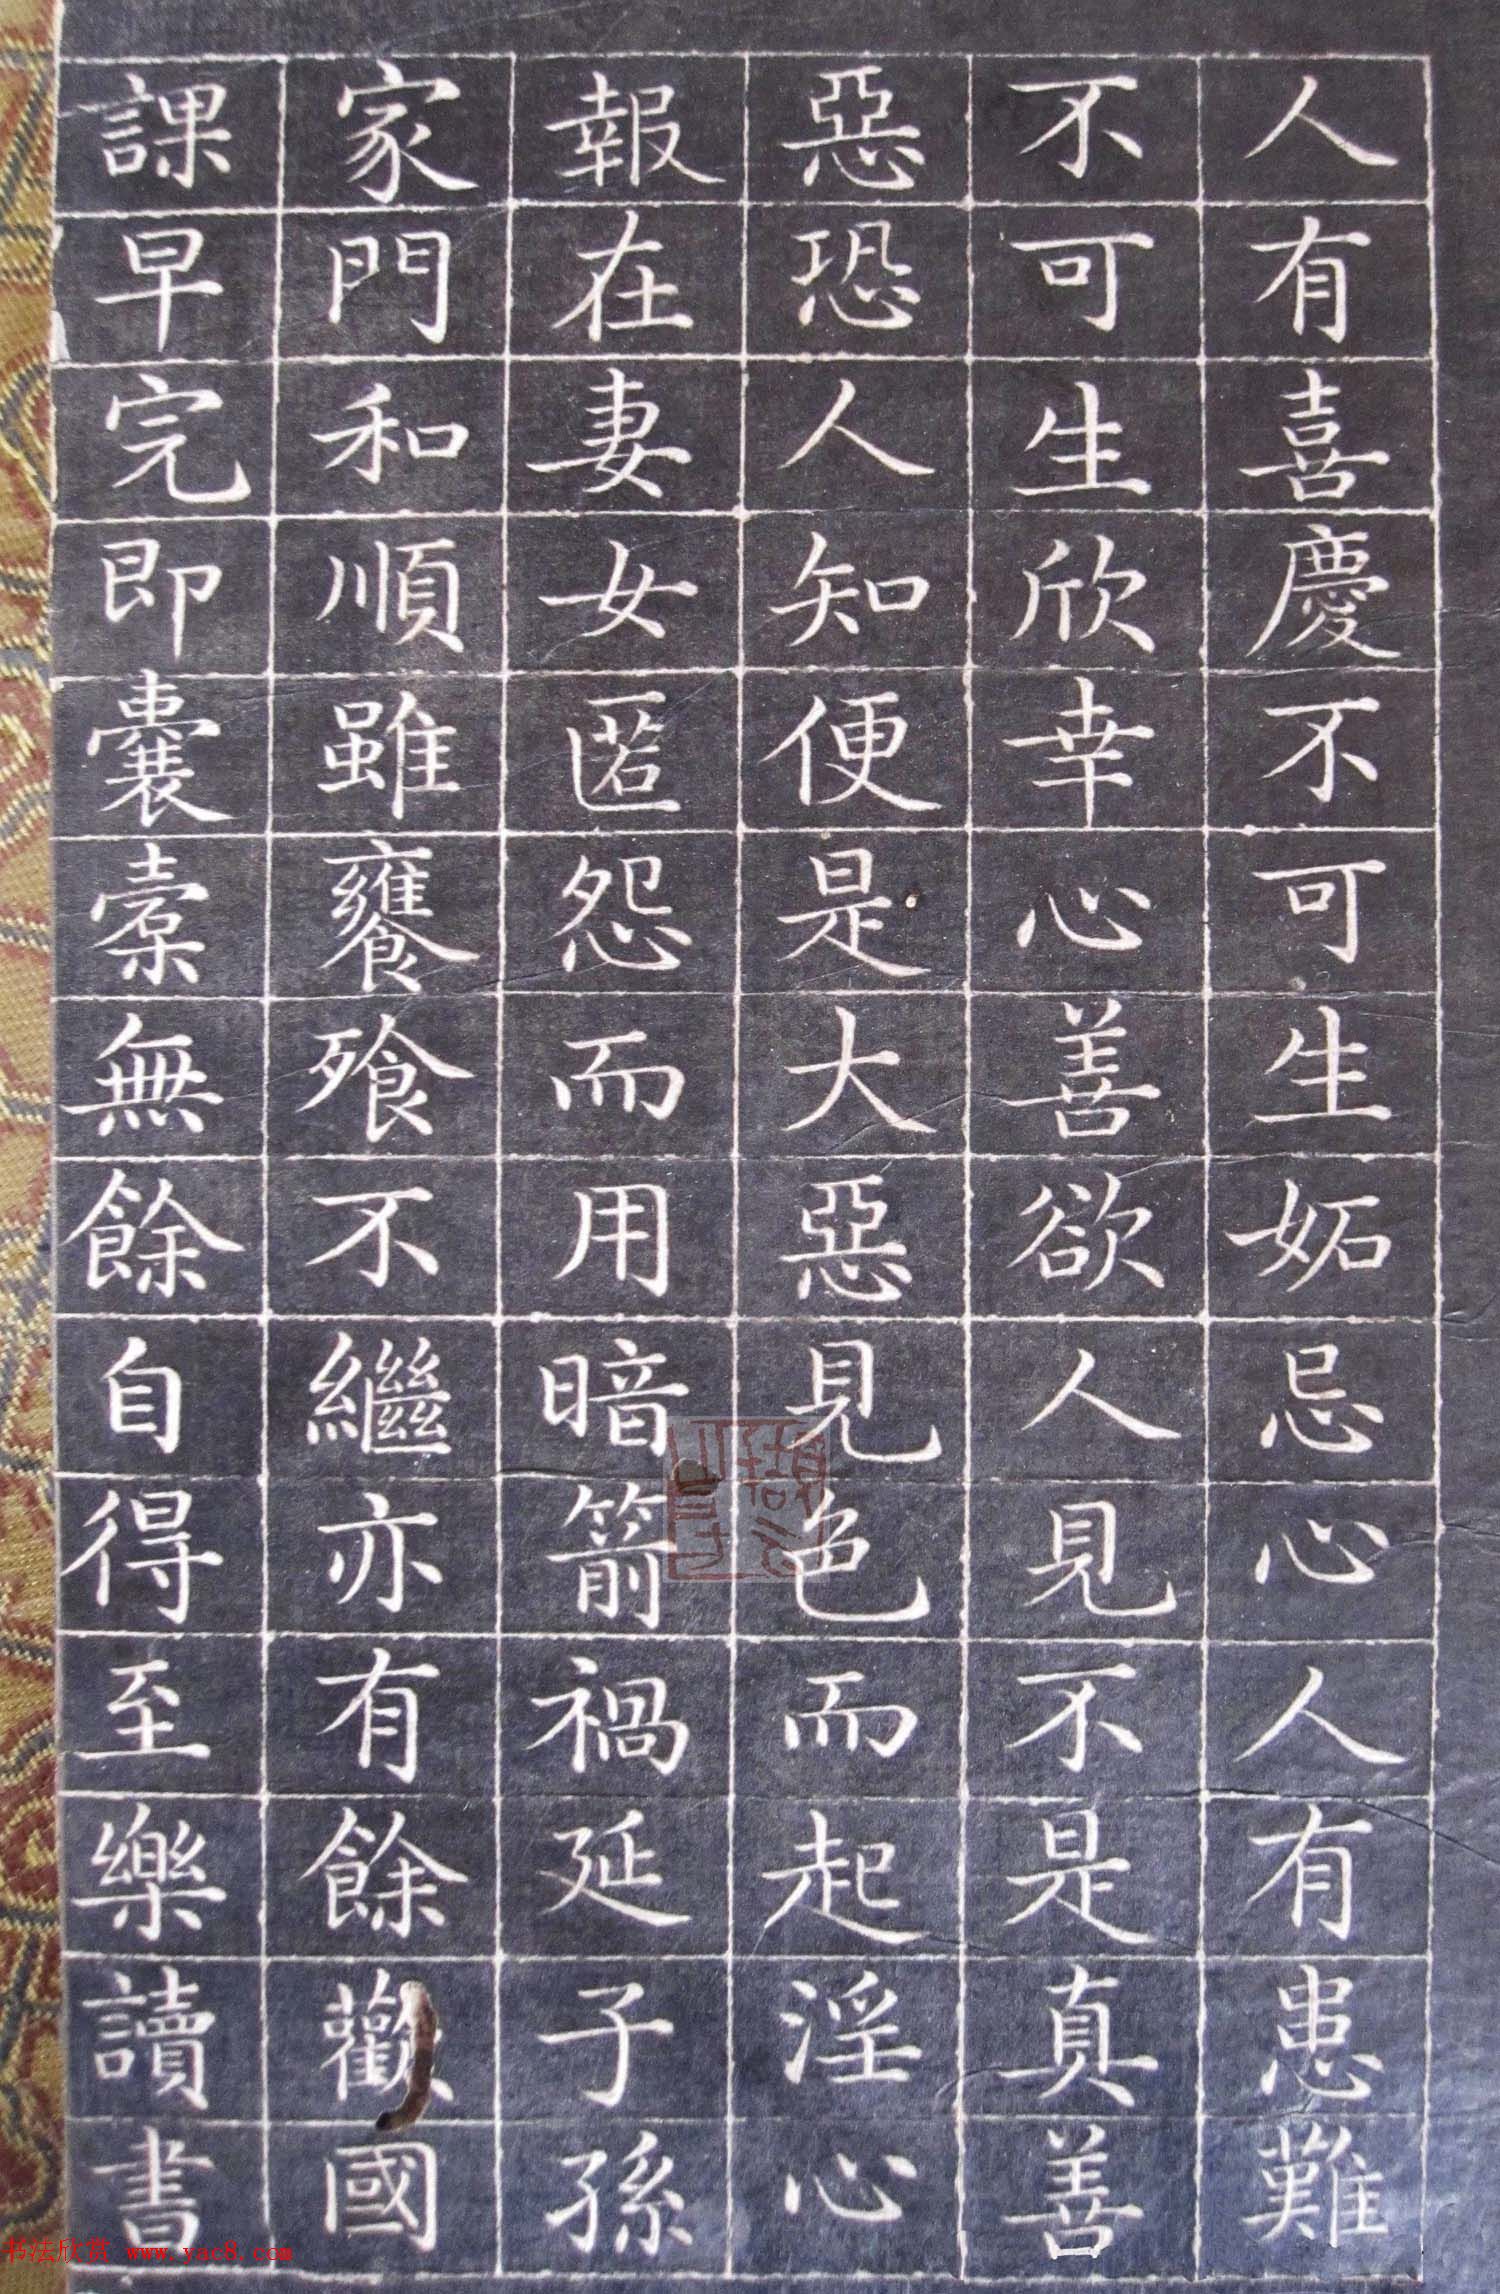 人有喜慶不可生妬忌心人有患難
不可生欣幸心善欲人見不是真善
惡恐人知便是大惡見色而起淫心
報在妻女匿怨而用暗箭禍延子孫
家門和順雖饔飧不繼亦有餘歡國
課早完即囊橐無餘自得至樂讀書
书法欣赏 www.yac8.com